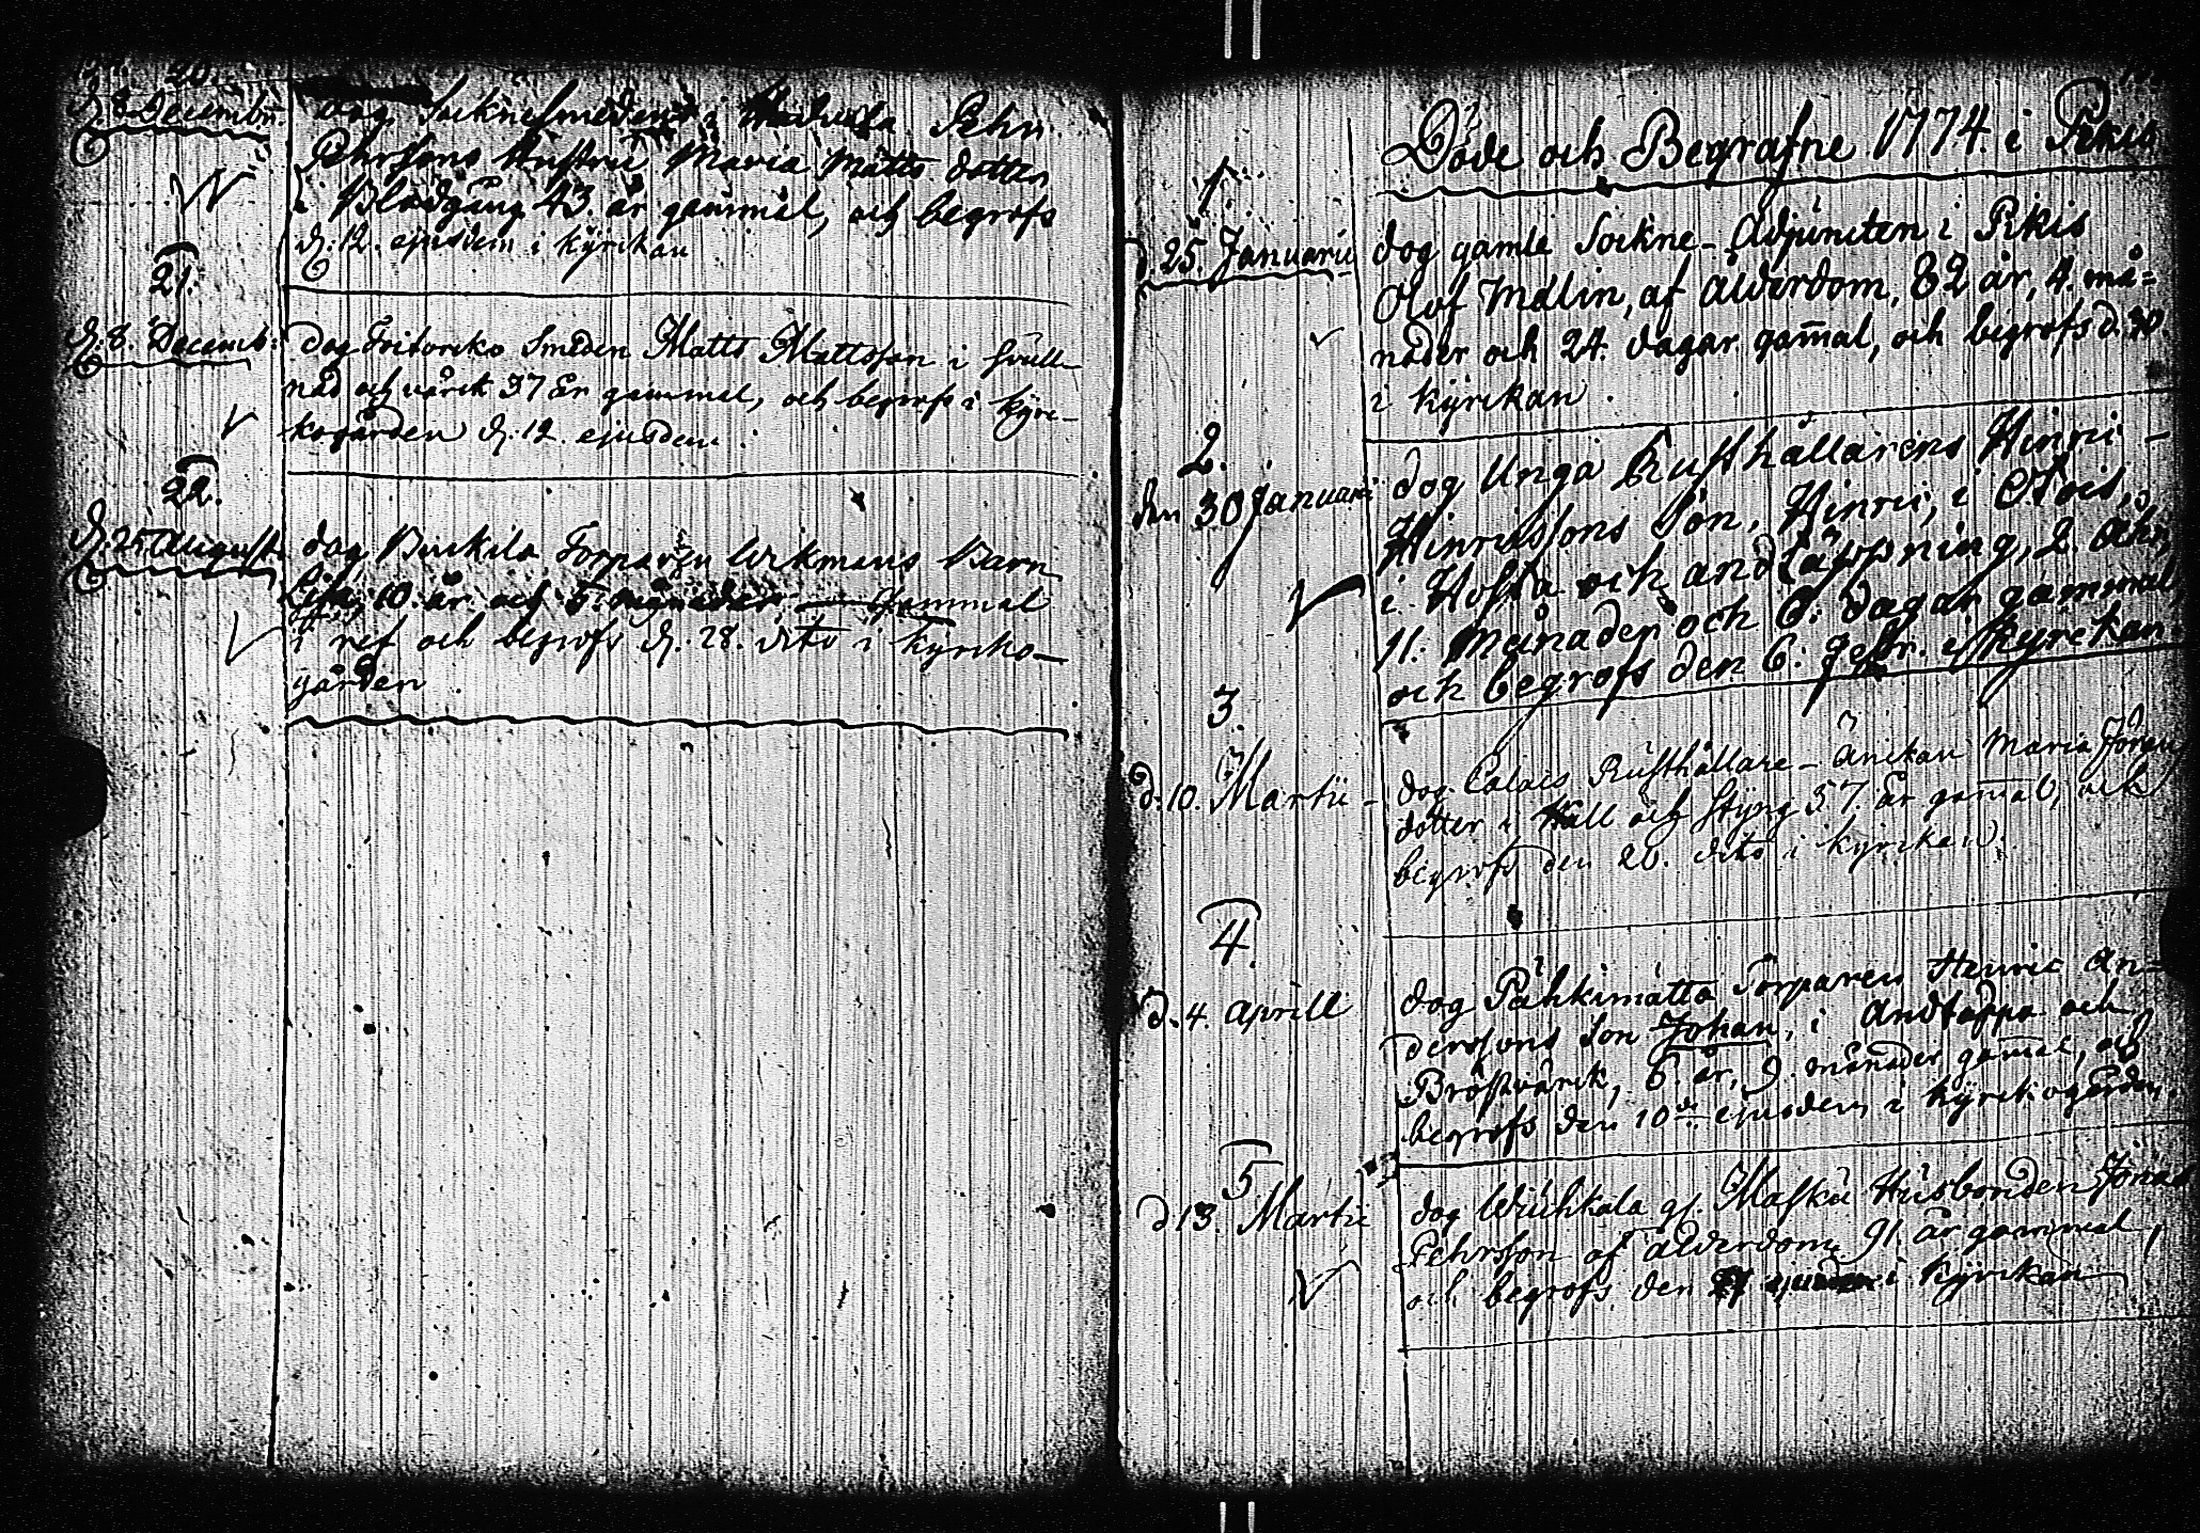 20.
d. 8 Decembr. dog Sockne Smedens i Pehr
Pehrssons Hustru Maria Matts dotter
i Blodgång 43. år gammal, och begrofs
d. 12. ejusdem i kÿrckan
21.
d. 8. Decemb: dog Smeden Matts Mattsson i Svull-
nad och värck 37 år gammal, och begrofs i kÿrc-
kogården d. 12. ejusdem.
22.
d. 25 August dog Torparen Barn
Lisa, 10. år och 5. månader gammal
i ref och begrofs d. 28. dito i kÿrcko-
gården.
Döde och Begrafne 1774. i Pikis
1.
d. 25. Januarii dog gamle Sockne-Adjuncten i Pikis
Olof Mdlin, af ålderdom, 82 år, 4. må=
nader och 24. dagar gam̄al, och begrofs d. 30
i kÿrckan.
2.
den 30 Januarii dog Unga Rusthållarens Hinric
Hinricssons Son, Hinric, i
i Hosta och andtäppning, 2. åhr,
11. Månader och 6. dagar gammal,
och begrofs den 6. Febr. i kÿrckan.
3.
d. 10. Martii dog Rusthållare-Änckan Maria Jörans
dotter i Håll och Stÿng 57. år gam̄al, och
begrofs den 20. dito i kÿrckan.
4.
d. 4. Aprill dog Pähkimätto Torparen Henric An-
derssons Son Johan, i Andtäppa och
Bröstwärck, 6. år, 9. månader gam̄al, och
begrofs den 10de ejusdem i kÿrckogården.
5
d 13. Martii dog Husbonden Jöran
Pehrsson af ålderdom 91. år gammal,
och begrofs den ejusdem i Kÿrckan